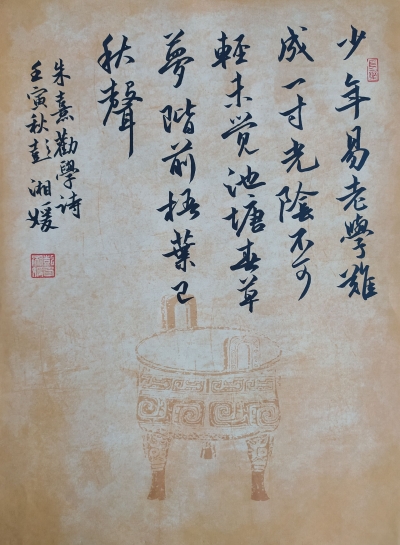 少年易老學難
成一寸光陰不可
輕未觉池塘春草
夢階前梧葉已
秋聲
朱熹勸學詩
壬寅秋彭湘媛